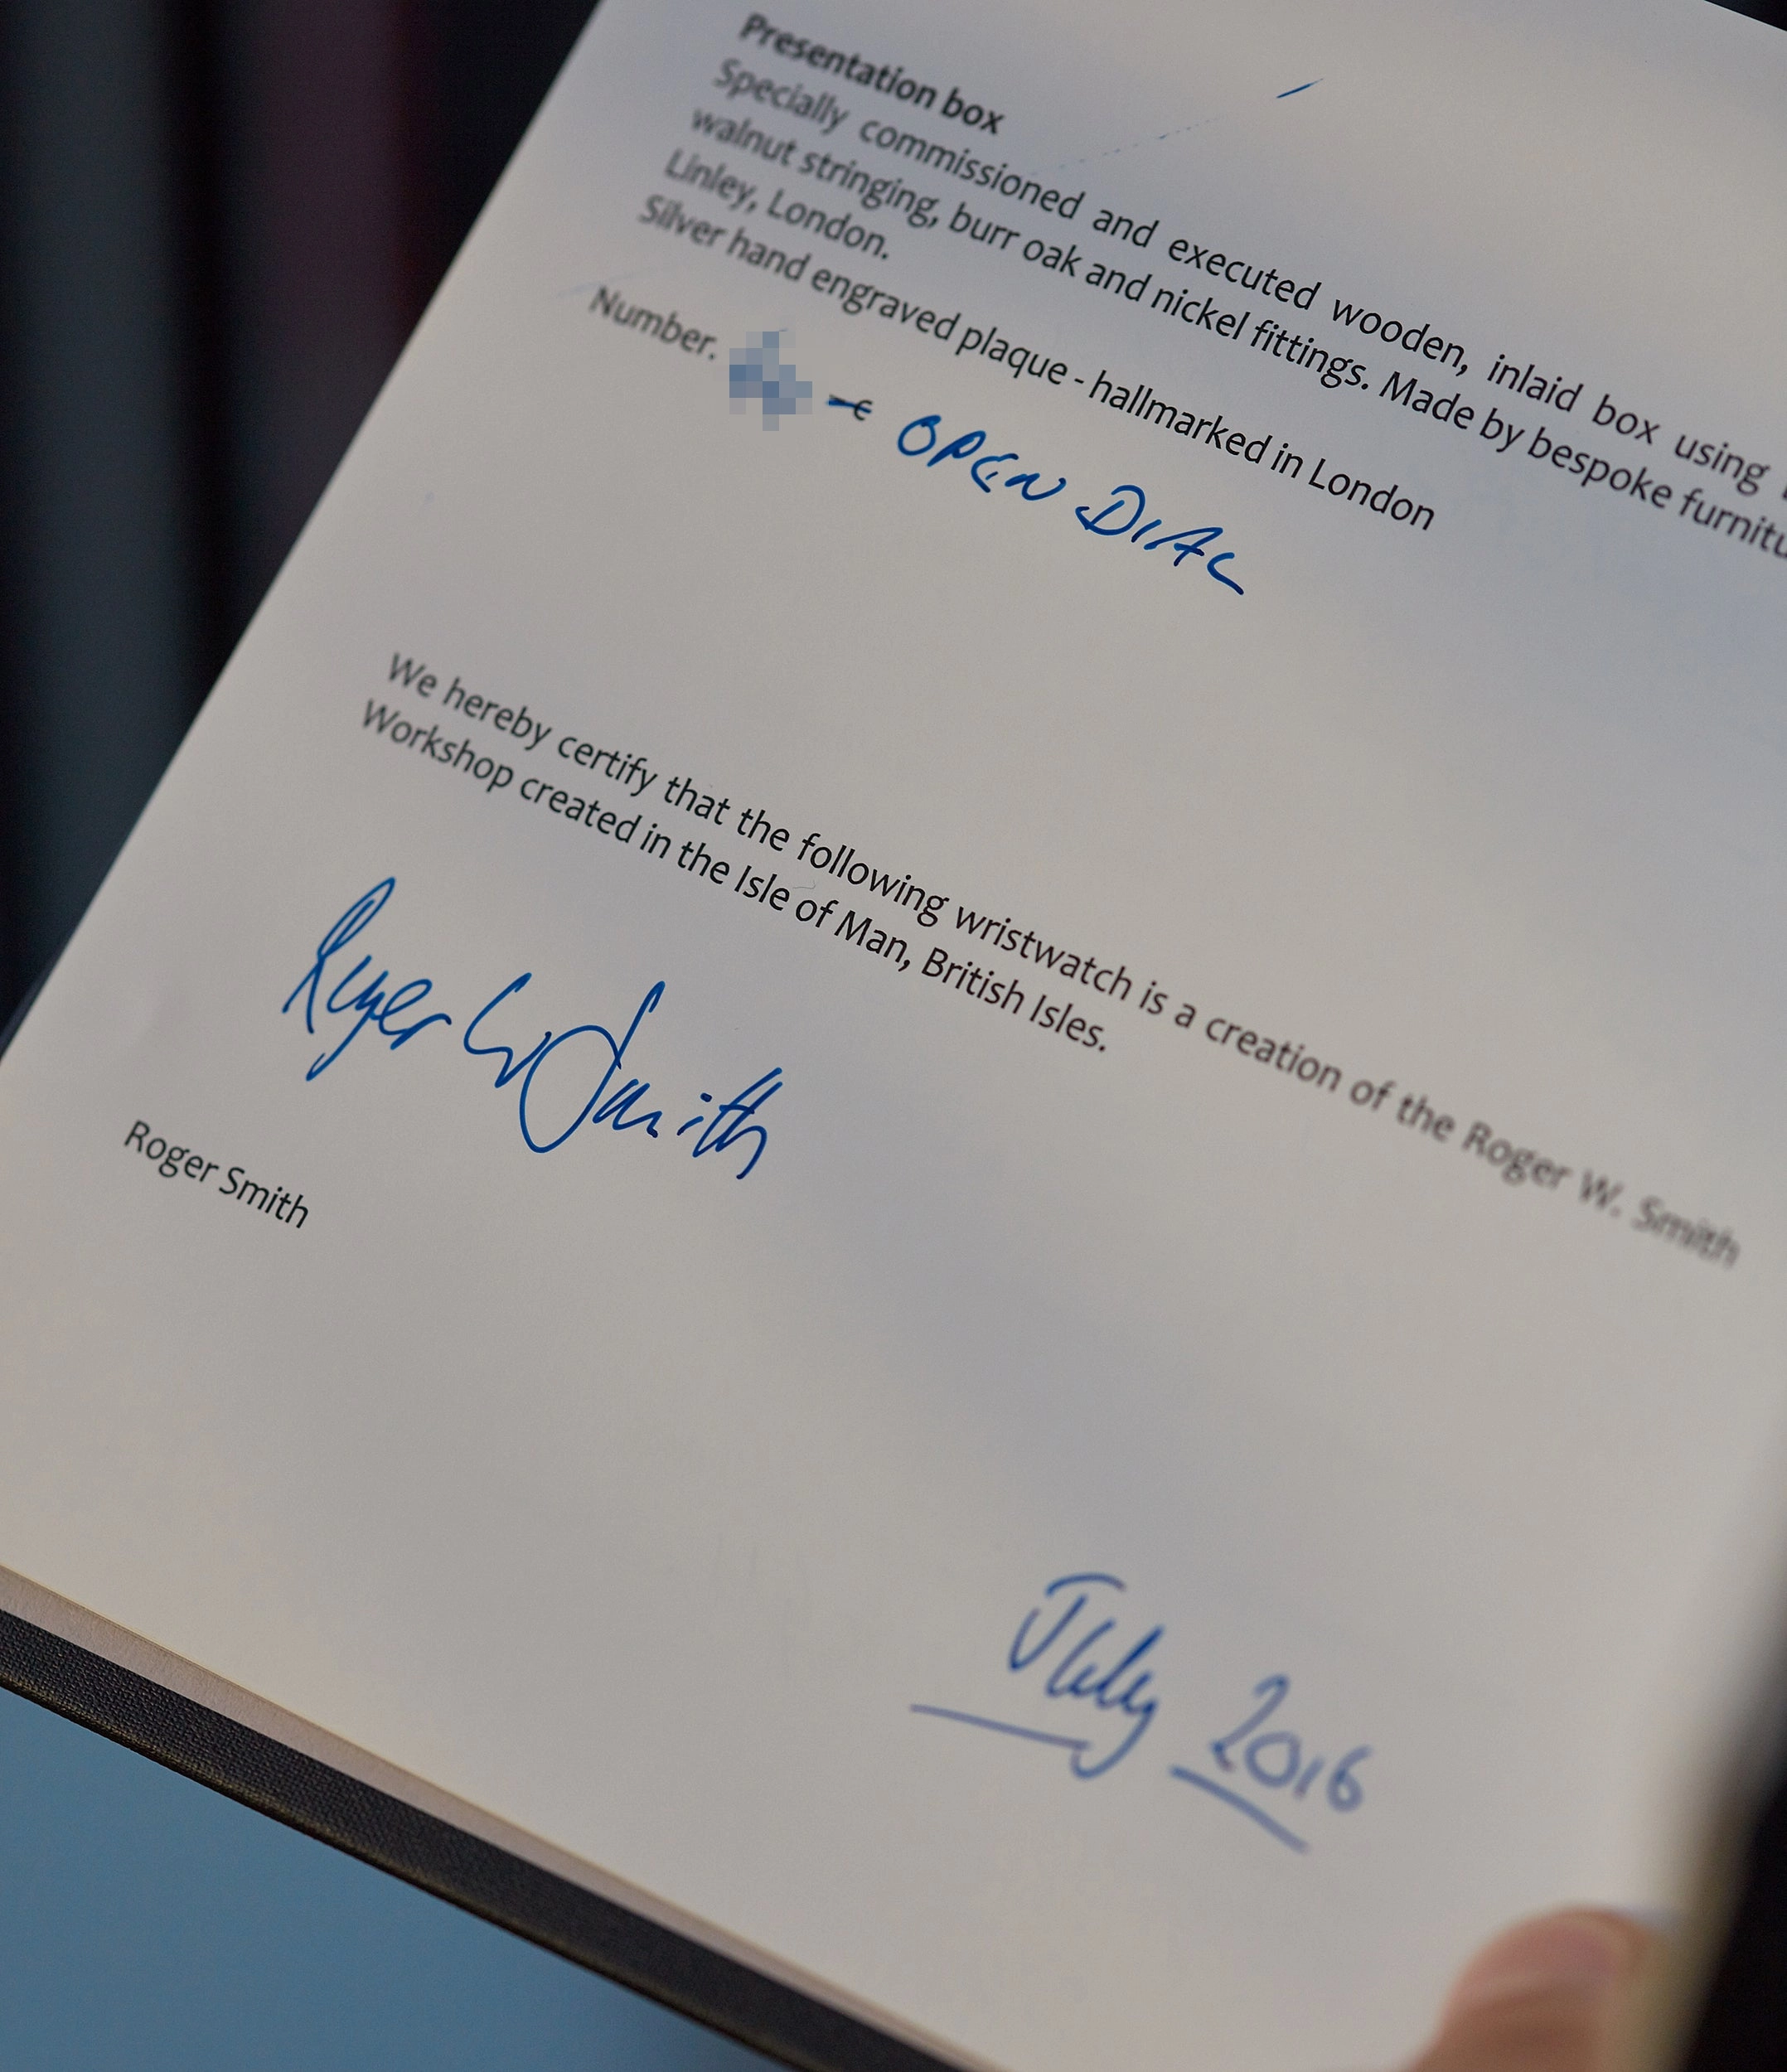 Presentation box
Specially commissioned and executed wooden, inlaid box using
walnut stringing, burr oak and nickel fittings. Made by bespoke
Linley, London.
Silver hand engraved plaque - hallmarked in London
Number. - OPEN DIAL
We hereby certify that the following wristwatch is a creation of the Roger W. Smith
Workshop created in the Isle of Man, British Isles.
Roger W Smith
Roger Smith
July 2016